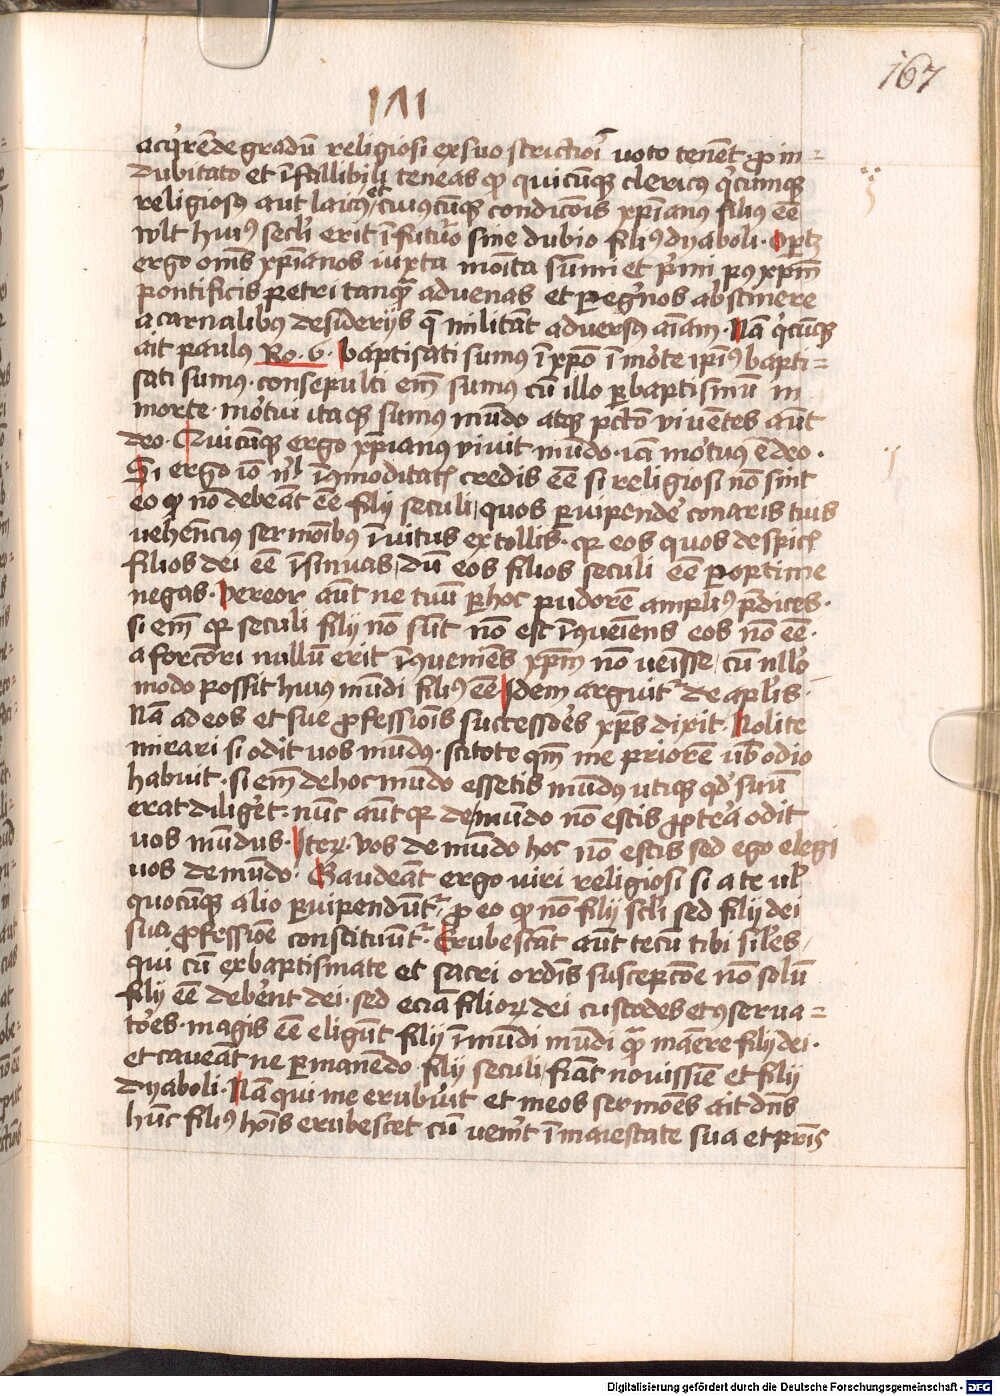 167
acq̄rēde gradū religiosi ex suo strictiōi voto tenēt. pro in=
dubitato et īfallibili teneas qꝫ quicūqꝫ clericꝰ q̄cūmqꝫ
religiosꝰ aut laicꝰ et cuiuscūqꝫ condicōis xp̄ianꝰ filius ēē
wlt huiꝰ secl̄i erit ī futuro sine dubio filiꝰ dyaboli. Oportꝫ
ergo om̄s xp̄ianos iuxta moīta sūmi et p̄mi pꝰ xp̄m
pontificis petri tanqꝫ advenas et pegr̄nos abstinere
a carnalibꝰ desiderijs q̄ militāt adversꝰ aīam. Nā q̄cūqꝫ
ait paulus Ro. 6. baptisati sumus ī xp̄o ī morte ip̄iꝰ bapti=
sati sumus. consepulti em̄ sumus cū illo per baptismū in
morte. mortui itaqꝫ sumus mūdo atqꝫ pctō viventes aūt
deo. Quicūqꝫ ergo xp̄ianus vivit mūdo. ict̄ mortuꝰ ē deo.
Si ergo iō credis ēē si religiosi nō sint
eo qꝫ nō debeāt ēē filij seculi, quos pervipendē conaris tuis
vehēncius sermōibus īvitus extollis. qꝛ eos quos despicis
filios dei ēē īsinuas, dū eos filios seculi ēē per optime
negas. Vereor aūt ne tuū per hoc pudorē ampliꝰ p̄dices.
si em̄ qꝛ seculi filij nō sūt nō est īꝯveīens eos nō ēē.
a forcōri nullū erit īꝯveniēs xp̄m nō veīsse, cū nll̄o
modo possit huius mūdi filiꝰ ēē. Idem arguitᷣ de apl̄is.
Nā ad eos et sue professiōis successōes xp̄s dixit. Nolite
mirari si odit vos mūdꝰ. scitote qm̄ me priorē vob̄ odio
habuit. si em̄ de hoc mūdo essetis mūdꝰ utiqꝫ qd̄ suū
erat diliget. nūc aūt qꝛ de mūdo nō estis propterea odit
vos mūdus. Iteꝝ. vos de mūdo hoc nō estis sed ego elegi
vos de mūdo. Gaudeāt ergo viri religiosi si a te vl̄
quocūqꝫ alio pervipendūtᷣ, pro eo qꝫ nō filij scl̄i sed filij dei
sua professiōe constituūtᷣ. Erubescāt aūt tecū tibi siles,
qui cū ex baptismate et sacri ordīs suscepcōe nō solū
filij ēē debēnt dei. sed eciā filioꝝ dei custodes et ꝯserua=
tōes. magis ēē eligūt filij īmūdi mūdi qꝫ manēre filij dei.
et caveāt ne permanēdo filij seculi, fiāt novissīe et filij
dyaboli. Nā qui me erubuit et meos sermōes ait dn̄s
hūc filiꝰ hoīs erubescet cū venerit ī maiestate sua et pris̄
Digitalisierung gefördert durch die Deutsche Forschungsgemeinschaft - DFG